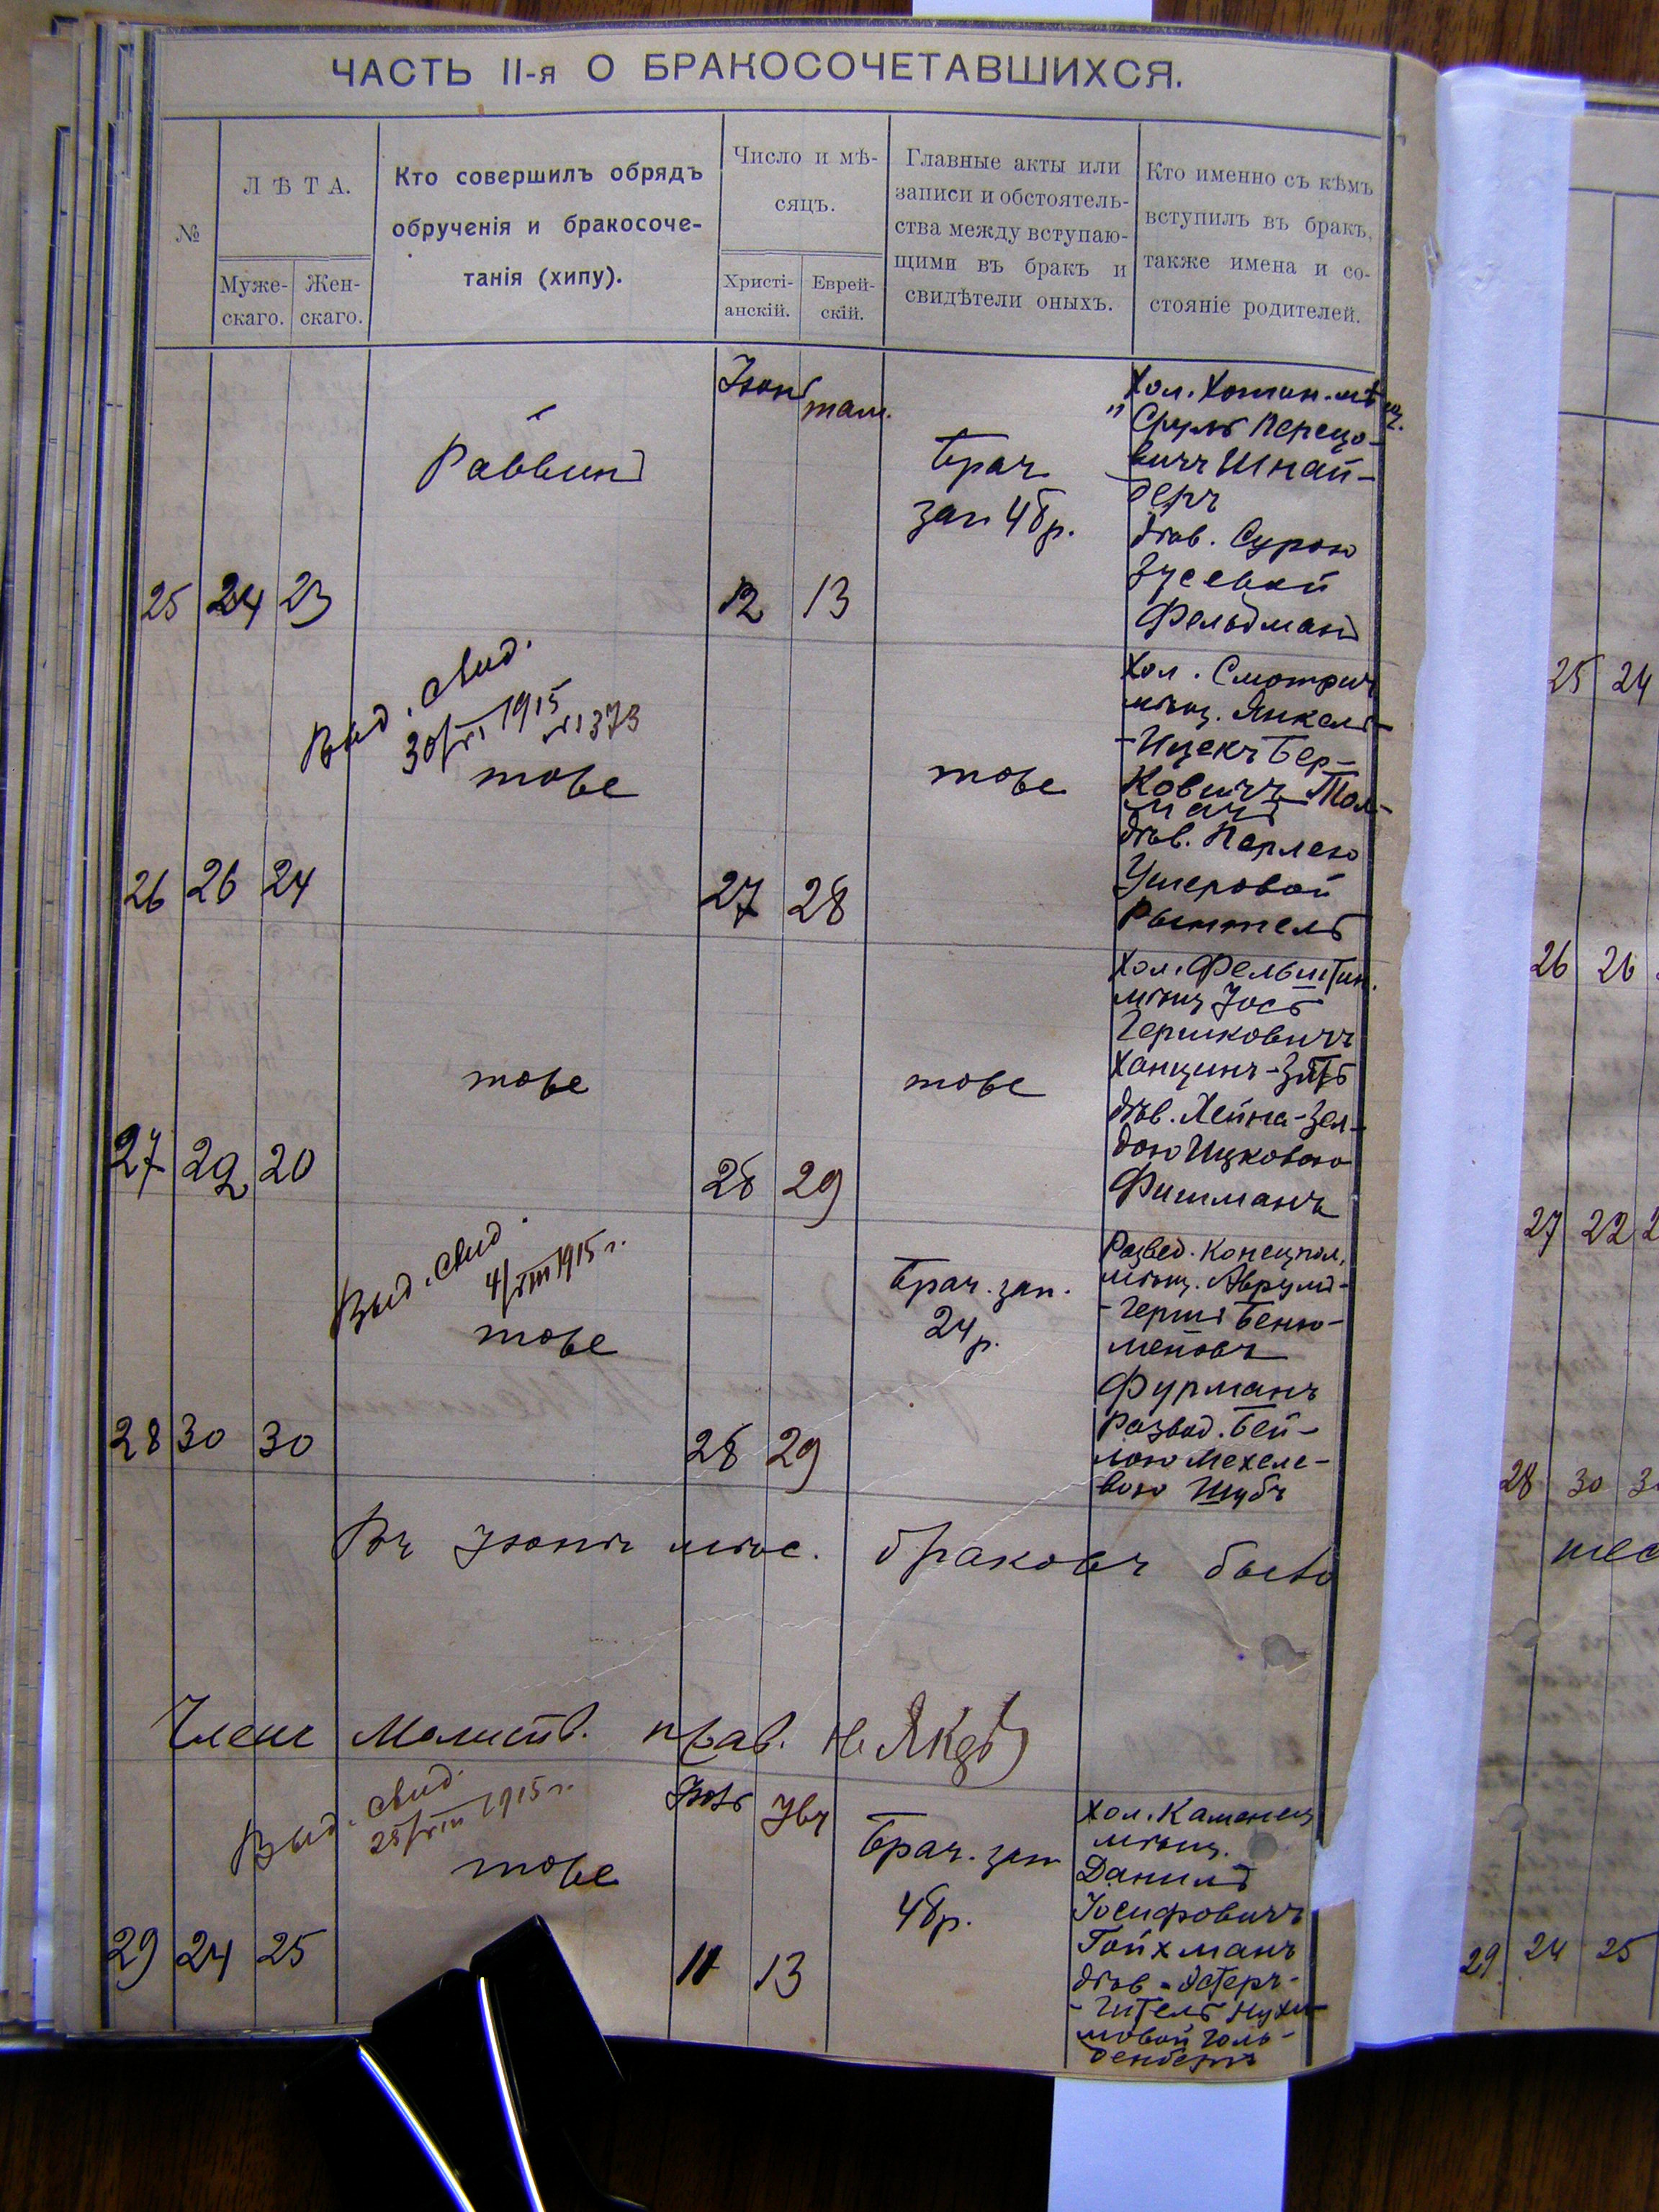 ЧАСТЬ II-я О БРАКОСОЧЕТАВШИХСЯ.
№
ЛѢТА.
Муже-
скаго.
Жен-
скаго.
Кто совершилъ обрядъ
обрученія и бракосоче-
танія (хипу).
Число и мѣ-
сяцъ.
Христі-
анскій.
Еврей-
скій.
Главные акты или
записи и обстоятель-
ства между вступаю-
щими въ бракъ и
свидѣтели оныхъ.
Кто именно съ кѣмъ
вступилъ въ бракъ,
также имена и со-
стояніе родителей.
25 24 23
Раввинъ
Іюнь там.
12 13
Брач.
зап 48р.
Хол. Хотин. мѣщ.
Сруль Перецо-
вичъ Шнай-
деръ
дѣв. Сурою
Зусевой
Фельдманъ
26 26 24
Выд. свид.
30/VI 1915
№ 373
тоже
27 28
тоже
Хол. Смотрич
мѣщ. Янкель-
-Ицекъ Бер-
ковичъ Тол-
мачъ
дѣв. Перлею
Ушеровой
27 22 20
тоже
28 29
тоже
Хол. Фельштин.
мѣщ Іось
Гершковичъ
дѣв. Хейна-Зел-
дою Ицковою
Фишманъ
28 30 30
Выд. свид.
4/VIII 1915 г.
тоже
28 29
Брач. зап.
24 р.
Развед. Конецпол.
мѣщ. Аврумъ-
-Гершъ Беню-
меновъ
Фурманъ
развед. Бей-
лою Мехеле-
вою Шубъ
Въ Іюнѣ мѣс. браковъ было
Членъ Молитв. прав.
29 24 25
Выд. свид.
28/VIII 1915 г.
тоже
11 13
Брач. зап
48р.
Хол. Каменец
мѣщ.
Данилъ
Іосифовичъ
Гойхманъ
дѣв. Эстеръ-
-Гитель Нухи-
мовой Голь-
денбергъ
25 24
26 26
27 22 2
28 30 3
29 24 25